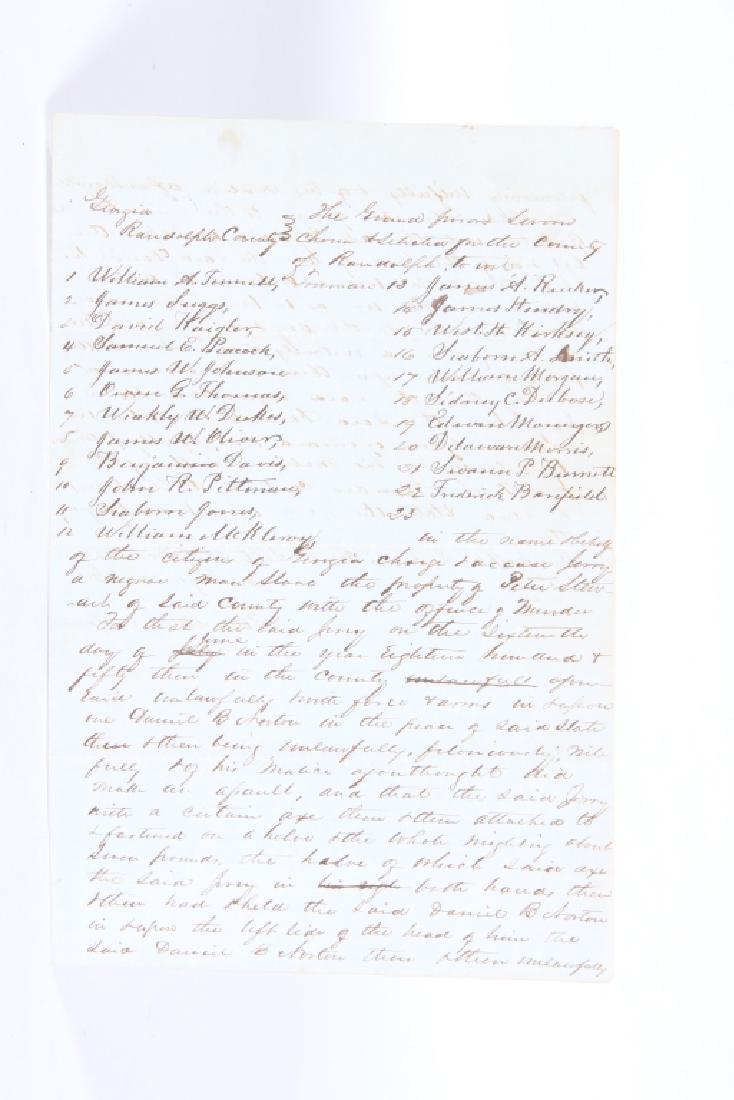 Georgia
The Grand Jurors Sworn
Randolph County Chosen & Selected for the County
of Randolph to wit
1 William A. Tennill, Foreman
2 James Suggs,
3 David Kaigler,
4 Samuel E. Peacock,
5 James W. Johnson
6 Owen G. Thomas,
7 Weakly W. Dukes,
8 James W. Oliver,
9 Benjamin Davis,
10 John R. Pittman,
11 Seaborn Jones,
12 William McKleroy
13 James A. Rucker,
14 James Hendry,
15 West. H. Kirksey,
16 Seaborn A. Smith,
17 William Morgan,
18 Sidney C. Dubose,
19 Edwin
20 Delaware Morris,
21 P. Burnett
22 Fredrick Banfield
23
in the name & behalf
of the citizens of Georgia charge & accuse Jerry
a negroe man slave the property of Peter Stew-
art of said County with the offence of Murder
For that the said Jerry on the Sixteenth
day of June in the year Eighteen hundred &
fifty then in the County unlawfull afore
said unlawfully with force & arms in & upon
one Daniel B Norton in the peace of said State
then & then being unlawfully, feloneously, Wil-
fully & of his Malice aforethought did
Make an assault, and that the said Jerry
with a certain axe then & then attached to
& fastned on a helve & the whole weighing about
Seven pounds, the helve of which said axe
the said Jerry in both hands then
& then had & held the said Daniel B Norton
in & upon the left side of the head of him the
said Daniel B Norton then & then unlawfully